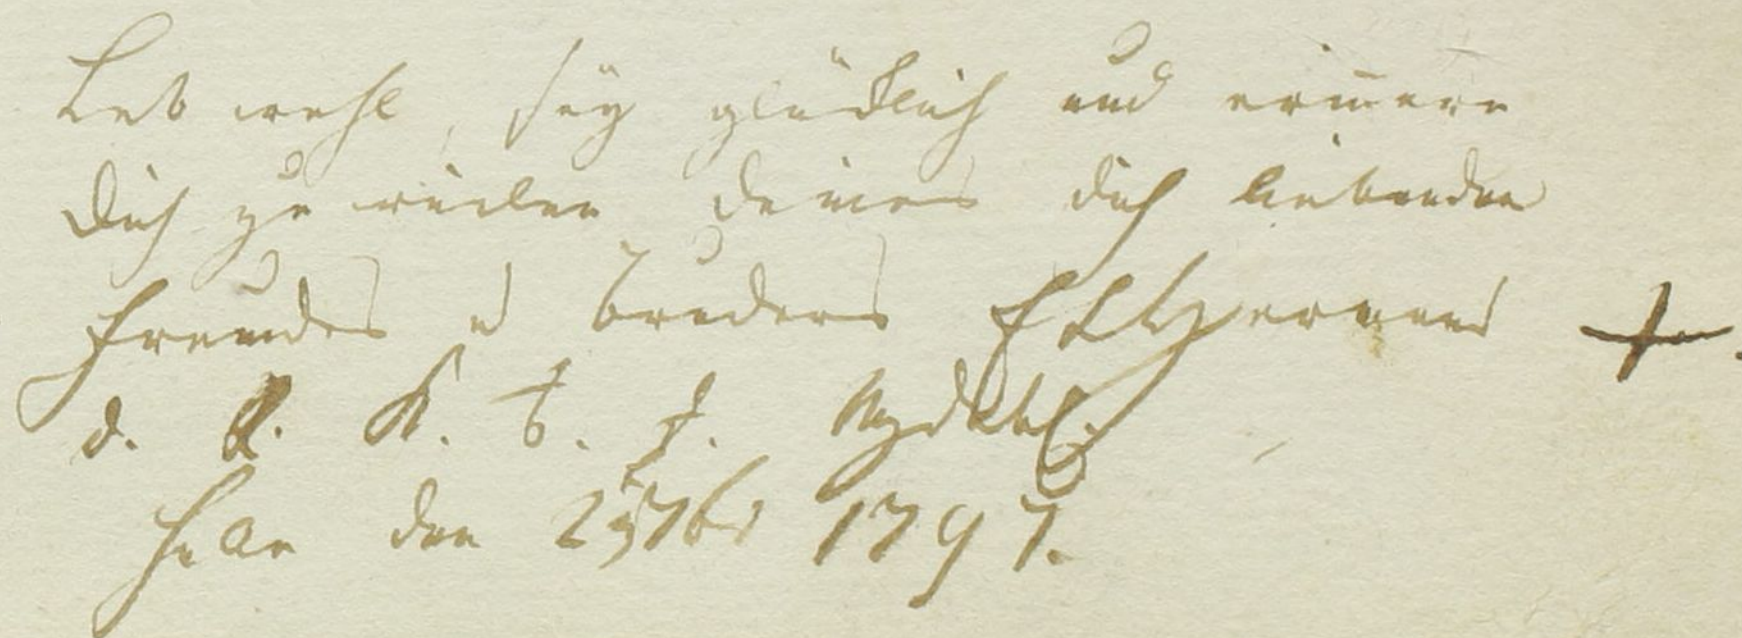 Leb wohl, sey glücklich und erinnere
Dich zu weilen Deines dich liebenden
Freundes u Bruders
d. R. K. B. F.
Halle den 1797.